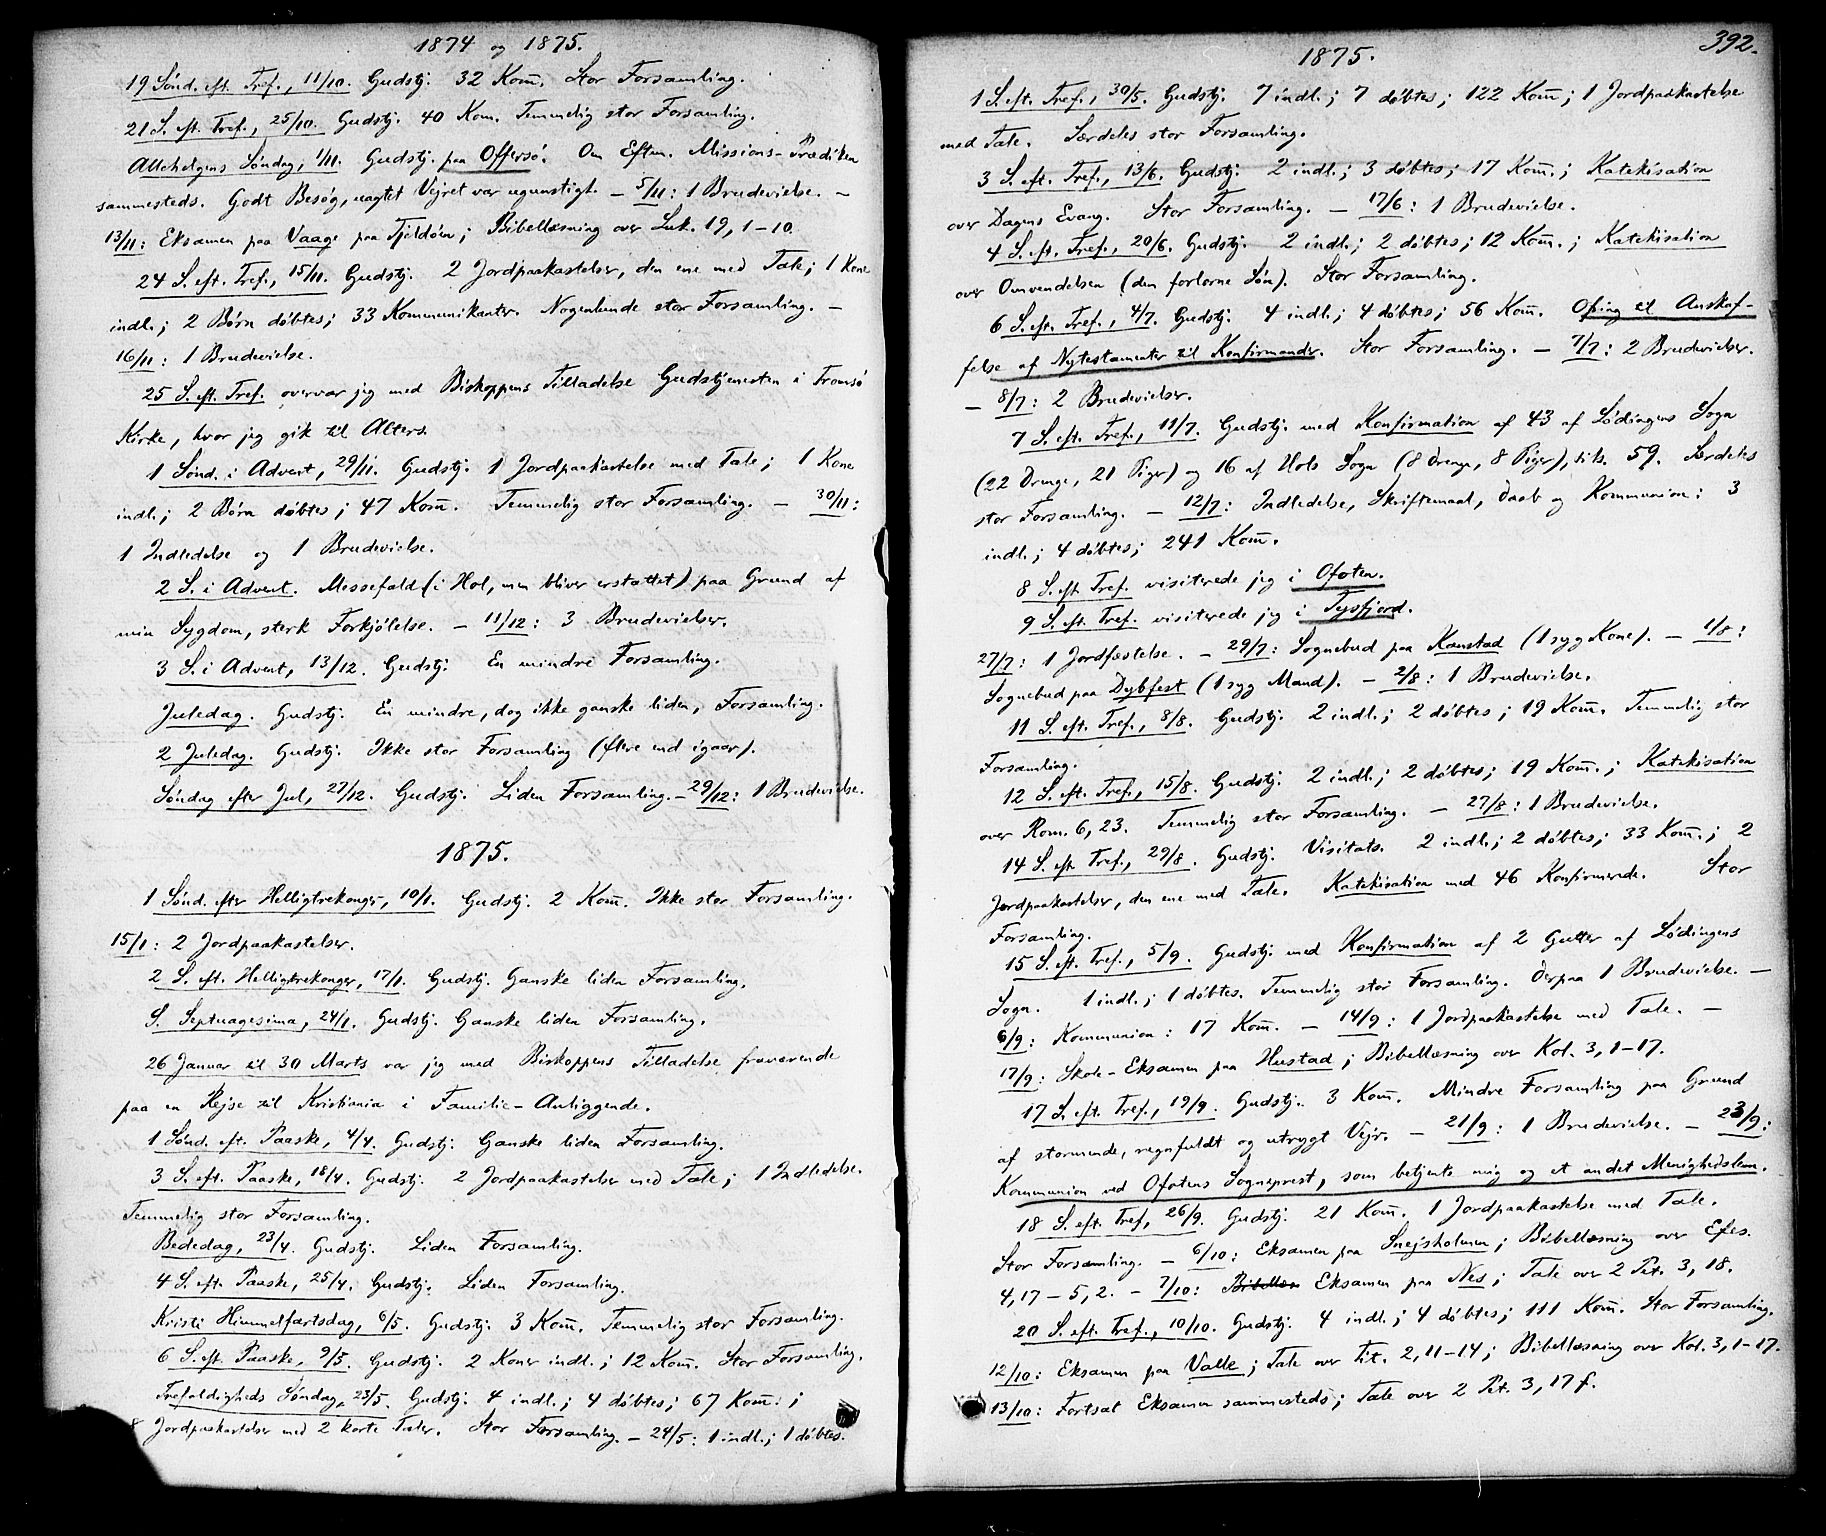 1874 og 1875.
19 Sönd. eft. Tref., 11/10. Gudstj. 32 Kom̄. Stor Forsamling.
21 S. eft. Tref., 25/10. Gudstj. 40 Kom. Temmelig stor Forsamling.
Allehelgens Söndag, 1/11. Gudstj. paa Offersö. Om Eftm. Missions-Prædiken
sammesteds. Godt Besög, uagtet Vejret var ugunstigt. — 5/11: 1 Brudevielse. —
13/11: Eksamen paa Vaage paa Tjeldöen; Bibellæsning over Luk. 19, 1-10.
24 S. eft. Tref., 15/11. Gudstj. 2 Jordpaakastelser, den ene med Tale; 1 Kone
indl.; 2 Börn döbtes; 33 Kommunikanter. Nogenlunde stor Forsamling. —
16/11: 1 Brudevielse.
25 S. eft. Tref. overvar jeg med Biskoppens Tilladelse Gudstjenesten i Tromsö
Kirke, hvor jeg gik til Alters.
1 Sönd. i Advent, 29/11. Gudstj. 1 Jordpaakastelse med Tale; 1 Kone
indl.; 2 Börn döbtes; 47 Kom̄. Temmelig stor Forsamling. — 30/11:
1 Indledelse og 1 Brudevielse.
2 S. i Advent. Messefald (i Hol, men bliver erstattet) paa Grund af
min Sygdom, sterk Forkjölelse. — 11/12: 3 Brudevielser.
3 S. i Advent, 13/12. Gudstj. En mindre Forsamling.
Juledag. Gudstj. En mindre, dog ikke ganske liden, Forsamling.
2 Juledag. Gudstj. Ikke stor Forsamling (flere end igaar).
Söndag efter Jul, 27/12. Gudstj. Liden Forsamling. — 29/12: 1 Brudevielse.
1875.
1 Sönd. efter Helligtrekonger, 10/1. Gudstj. 2 Kom̄. Ikke stor Forsamling.
15/1: 2 Jordpaakastelser.
2 S. eft. Helligtrekonger, 17/1. Gudstj. Ganske liden Forsamling.
S. Septuagesima, 24/1. Gudstj. Ganske liden Forsamling.
26 Januar til 30 Marts var jeg med Biskoppens Tilladelse fraværende
paa en Rejse til Kristiania i Familie-Anliggende.
1 Sönd. eft. Paaske, 4/4. Gudstj. Ganske liden Forsamling.
3 S. eft. Paaske, 18/4. Gudstj. 2 Jordpaakastelser med Tale; 1 Indledelse.
Temmelig stor Forsamling.
Bededag, 23/4. Gudstj. Liden Forsamling.
4 S. eft. Paaske, 25/4. Gudstj. Liden Forsamling.
Kristi Himmelfartsdag, 6/5. Gudstj. 3 Kom̄. Temmelig stor Forsamling.
6 S. eft. Paaske, 9/5. Gudstj. 2 Koner indl.; 12 Kom̄. Stor Forsamling.
Trefoldigheds Söndag, 23/5. Gudstj. 4 indl.; 4 döbtes; 67 Kom̄.;
8 Jordpaakastelser med 2 korte Taler. Stor Forsamling. — 24/5: 1 indl.; 1 döbtes.
392.
1875.
1 S. eft. Tref., 30/5. Gudstj. 7 indl.; 7 döbtes; 122 Kom̄; 1 Jordpaakastelse
med Tale. Særdeles stor Forsamling.
3 S. eft. Tref., 13/6. Gudstj. 2 indl.; 3 döbtes; 17 Kom̄.; Katekisation
over Dagens Evang. Stor Forsamling. — 17/6: 1 Brudevielse.
4 S. eft. Tref., 20/6. Gudstj. 2 indl.; 2 döbtes; 12 Kom̄.; Katekisation
over Omvendelsen (den forlorne Sön). Stor Forsamling.
6 S. eft. Tref., 4/7. Gudstj. 4 indl.; 4 döbtes; 56 Kom̄. Ofring til Anskaf-
felse af Nytestamenter til Konfirmander. Stor Forsamling. — 7/7: 2 Brudevielser.
— 8/7: 2 Brudevielser.
7 S. eft. Tref., 11/7. Gudstj. med Konfirmation af 43 af Lödingens Sogn
(22 Drenge, 21 Piger) og 16 af Hols Sogn (8 Drenge, 8 Piger), tils. 59. Særdeles
stor Forsamling. — 12/7: Indledelse, Skriftemaal, Daab og Kommunion: 3
indl.; 4 döbtes; 241 Kom̄.
8 S. eft. Tref. visiterede jeg i Ofoten.
9 S. eft. Tref. visiterede jeg i Tysfjord.
27/7: 1 Jordfæstelse. — 29/7: Sognebud paa Kanstad (1 syg Kone). — 1/8:
Sognebud paa Dybfest (1 syg Mand). — 2/8: 1 Brudevielse.
11 S. eft. Tref., 8/8. Gudstj. 2 indl.; 2 döbtes; 19 Kom̄. Temmelig stor
Forsamling.
12 S. eft. Tref., 15/8. Gudstj. 2 indl.; 2 döbtes; 19 Kom̄.; Katekisation
over Rom. 6, 23. Temmelig stor Forsamling. — 27/8: 1 Brudevielse.
14 S. eft. Tref., 29/8. Gudstj. Visitats. 2 indl.; 2 döbtes; 33 Kom̄.; 2
Jordpaakastelser, den ene med Tale. Katekisation med 46 Konfirmerede. Stor
Forsamling.
15 S. eft. Tref., 5/9. Gudstj. med Konfirmation af 2 Gutter af Lödingens
Sogn. 1 indl.; 1 döbtes. Temmelig stor Forsamling. Derpaa 1 Brudevielse. —
6/9: Kommunion: 17 Kom̄. — 14/9: 1 Jordpaakastelse med Tale. —
17/9: Skole-Eksamen paa Hustad; Bibellæsning over Kol. 3, 1-17.
17 S. eft. Tref., 19/9. Gudstj. 3 Kom̄. Mindre Forsamling paa Grund
af stormende, regnfuldt og utrygt Vejr. — 21/9: 1 Brudevielse. — 23/9:
Kommunion ved Ofotens Sogneprest, som betjente mig og et andet Menighedslem.
18 S. eft. Tref., 26/9. Gudstj. 21 Kom̄. 1 Jordpaakastelse med Tale.
Stor Forsamling. — 6/10: Eksamen paa Snejsholmen; Bibellæsning over Efes.
4, 17 - 5, 2. — 7/10: Bibellæs Eksamen paa Nes; Tale over 2 Pet. 3, 18.
20 S. eft. Tref., 10/10. Gudstj. 4 indl.; 4 döbtes; 111 Kom̄. Stor Forsamling.
12/10: Eksamen paa Valle; Tale over Tit. 2, 11-14; Bibellæsning over Kol. 3, 1-17.
13/10: Fortsat Eksamen sammesteds; Tale over 2 Pet. 3, 17 f.